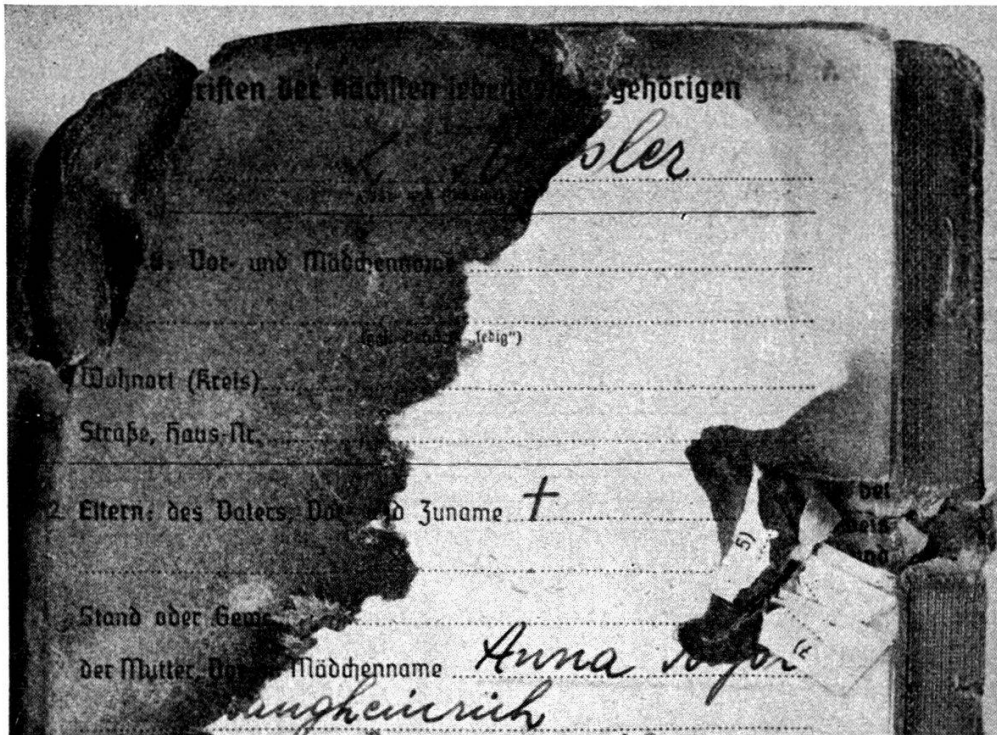 riften der nächsten lebend gehörigen
sler
Vor- und Mädchenname
„ledig“)
Wohnort (Kreis)
Straße, Haus-Nr.
2. Eltern: des Vaters, Vor- und Zuname †
bei
eis
ung
5)
Stand oder Gewe
der Mutter, Vor- Mädchenname Anna
angheinrich